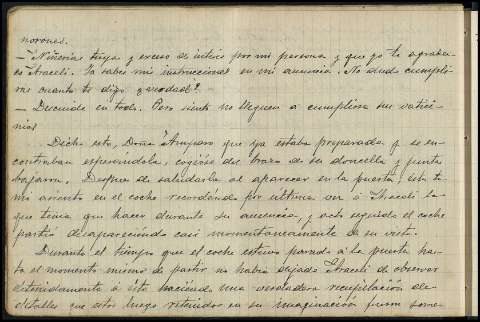 norones.
— Niñerias tuyas y exceso de interes por mi persona y que yo te agradez-
co Araceli. Ya sabes mis instrucciones en mi ausencia. No sauda cumpli-
ras cuanto te digo ¿verdad?
— Descuide en todo. Pero siento no lleguen a cumplirse sus vatici-
nios
Dicho esto, Doña Amparo que ya estaba preparada y se en-
contraban esperándola, cogióse del brazo de su doncella y juntas
bajaron. Despues de saludarla al aparecer en la puerta, esta to-
mó asiento en el coche recordándo por última vez á Araceli lo
que tenia que hacer durante su ausencia, y acto seguido el coche
partió desapareciendo casi momentaneamente de su vista.
Durante el tiempo que el coche estuvo parado á la puerta has-
ta el momento mismo de partir no habia dejado Araceli de observar
detenidamente á éste haciendo una verdadera recopilación de
detalles que estos luego retenidos en su imaginación fueron some-